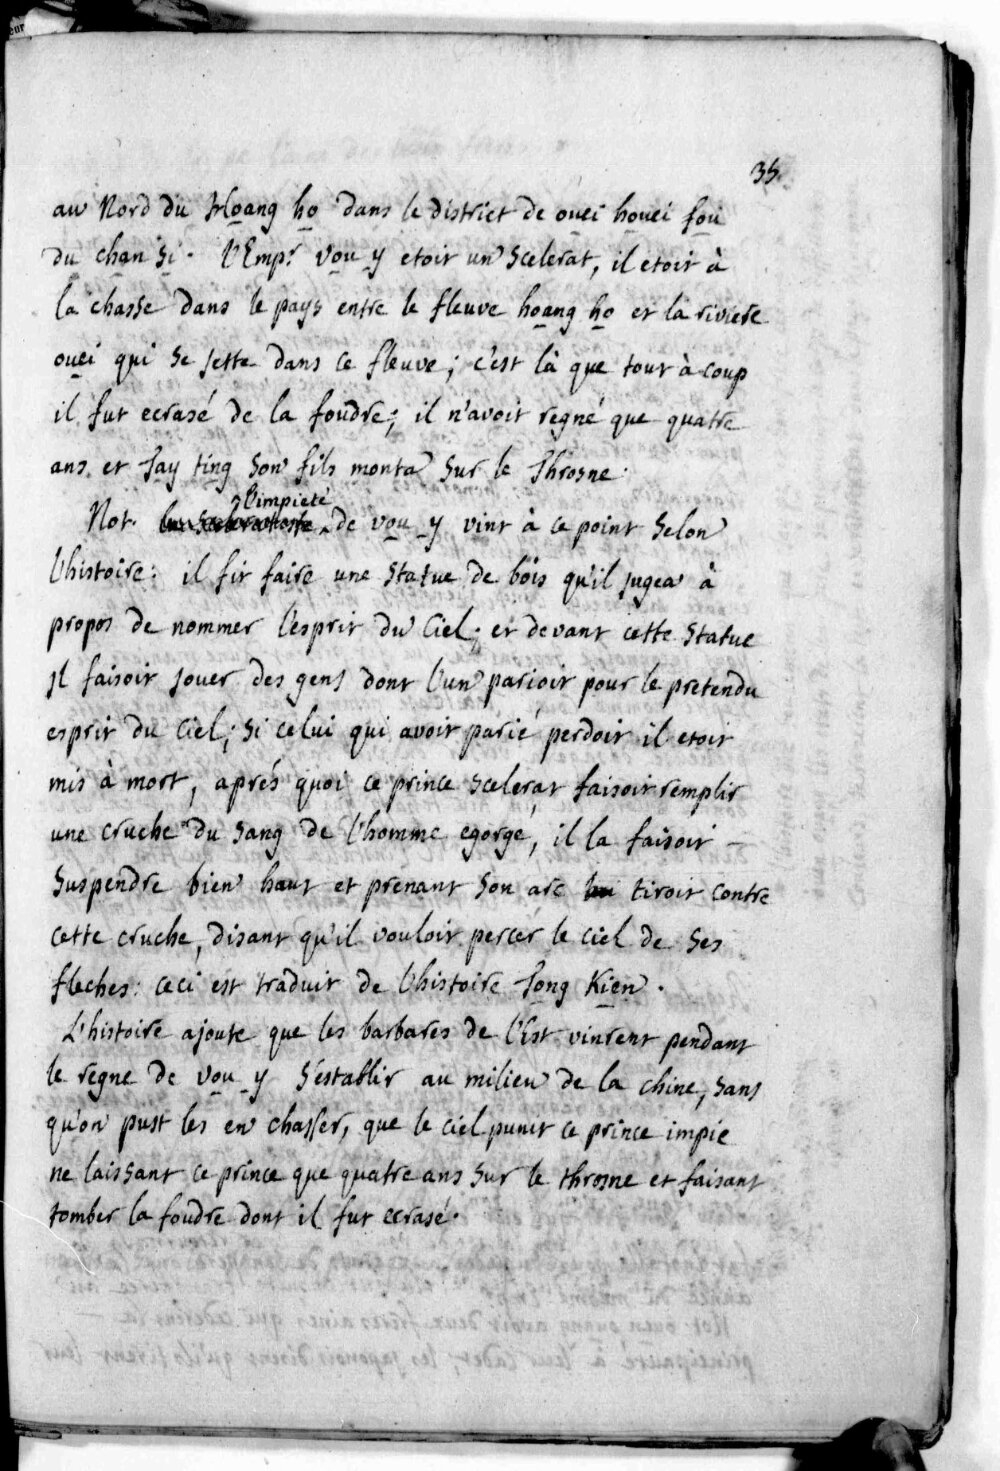 35.
au Nord du Hoang ho dans le district de ouei houei fou
du chan si. l'Emp.r vou y etoit un scelerat, il etoit à
la chasse dans le pays entre le fleuve hoang ho et la riviere
ouei qui se jette dans ce fleuve; c'est là que tout à coup
il fut ecrasé de la foudre; il n'avoit regné que quatre
ans. et Tay ting son fils monta sur le Throsne.
l'impieté
Not. de vou y vint à ce point selon
l'histoire: il fit faire une statue de bois qu'il jugea à
propos de nommer l'esprit du Ciel; et devant cette statue
il faisoit jouer des gens dont l'un parioit pour le pretendu
esprit du Ciel; si celui qui avoit parié perdoit il etoit
mis à mort, aprés quoi ce prince scelerat faisoit remplir
une cruche du sang de l'homme egorgé, il la faisoit —
suspendre bien haut et prenant son arc tiroit contre
cette cruche, disant qu'il vouloit percer le ciel de ses
fleches: ceci est traduit de l'histoire Tong Kien.
L'histoire ajoute que les barbares de l'Est vinrent pendant
le regne de vou y s'establir au milieu de la chine, sans
qu'on pust les en chasser, que le ciel punit ce prince impie
ne laissant ce prince que quatre ans sur le throsne et faisant
tomber la foudre dont il fut ecrasé.